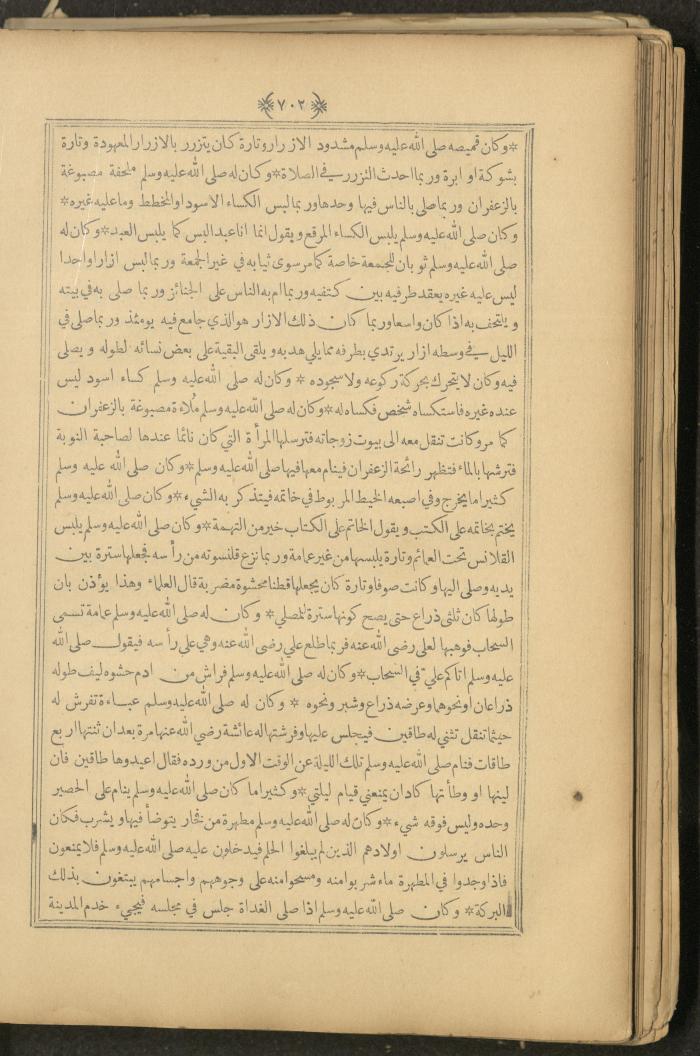 ٧٠٢
*وكان قميصه صلى الله عليه وسلم مشدود الازرار وتارة كان يتزرر بالازرار المعهودة وتارة
بشوكة او ابرة وربما احدث التزرر في الصلاة*وكان له صلى الله عليه وسلم ملحفة مصبوغة
بالزعفران وربما صلى بالناس فيها وحدها وربما لبس الكساء الاسود او المخطط وما عليه غيره*
وكان صلى الله عليه وسلم يلبس الكساء المرقع ويقول انما انا عبد البس كما يلبس العبد*وكان له
صلى الله عليه وسلم ثوبان للجمعة خاصة كما مر سوى ثيابه في غير الجمعة وربما لبس ازارا واحدا
ليس عليه غيره يعقد طرفيه بين كتفيه وربما ام به الناس على الجنائز وربما صلى به في بيته
ويلتحف به اذا كان واسعا وربما كان ذلك الازار هو الذي جامع فيه يومئذ وربما صلى في
الليل في وسطه ازار يرتدي بطرفه مما يلي هدبه ويلقى البقية على بعض نسائه لطوله ويصلى
فيه وكان لا يتحرك بحركة ركوعه ولا سجوده * وكان له صلى الله عليه وسلم كساء اسود ليس
عنده غيره فاستكساه شخص فكساه له*وكان له صلى الله عليه وسلم مُلاءة مصبوغة بالزعفران
كما مر وكانت تنقل معه الى بيوت زوجاته فترسلها المرأة التي كان نائما عندها لصاحبة النوبة
فترشها بالماء فتظهر رائحة الزعفران فينام معها فيها صلى الله عليه وسلم*وكان صلى الله عليه وسلم
كثيرا ما يخرج وفي اصبعه الخيط المربوط في خاتمه فيتذكر به الشيء*وكان صلى الله عليه وسلم
يختم بخاتمه على الكتب ويقول الخاتم على الكتاب خير من التهمة*وكان صلى الله عليه وسلم يلبس
القلانس تحت العمائم وتارة يلبسها من غير عمامة وربما نزع قلنسوته من رأسه فجعلها سترة بين
يديه وصلى اليها وكانت صوفا وتارة كان يجعلها قطنا محشوة مضربة قال العلماء وهذا يؤذن بان
طولها كان ثلثى ذراع حتى يصح كونها سترة للمصلي* وكان له صلى الله عليه وسلم عمامة تسمى
السحاب فوهبها لعلى رضى الله عنه فربما طلع علي رضى الله عنه وهي على رأسه فيقول صلى الله
عليه وسلم اتاكم عليّ في السحاب*وكان له صلى الله عليه وسلم فراش من ادم حشوه ليف طوله
ذراعان او نحوهما وعرضه ذراع وشبر ونحوه * وكان له صلى الله عليه وسلم عباءة تفرش له
حيثما تنقل تثني له طاقين فيجلس عليها وفرشتها له عائشة رضي الله عنها مرة بعد ان ثنتها اربع
طاقات فنام صلى الله عليه وسلم تلك الليلة عن الوقت الاول من ورده فقال اعيدوها طاقين فان
لينها او وطأتها كاد ان يمنعني قيام ليلتي*وكثيرا ما كان صلى الله عليه وسلم ينام على الحصير
وحده وليس فوقه شيء*وكان له صلى الله عليه وسلم مطهرة من فخار يتوضأ فيها ويشرب فكان
الناس يرسلون اولادهم الذين لم يبلغوا الحلم فيدخلون عليه صلى الله عليه وسلم فلا يمنعون
فاذا وجدوا في المطهرة ماء شربوا منه ومسحوا منه على وجوههم واجسامهم يبتغون بذلك
البركة* وكان صلى الله عليه وسلم اذا صلى الغداة جلس في مجلسه فيجيء خدم المدينة